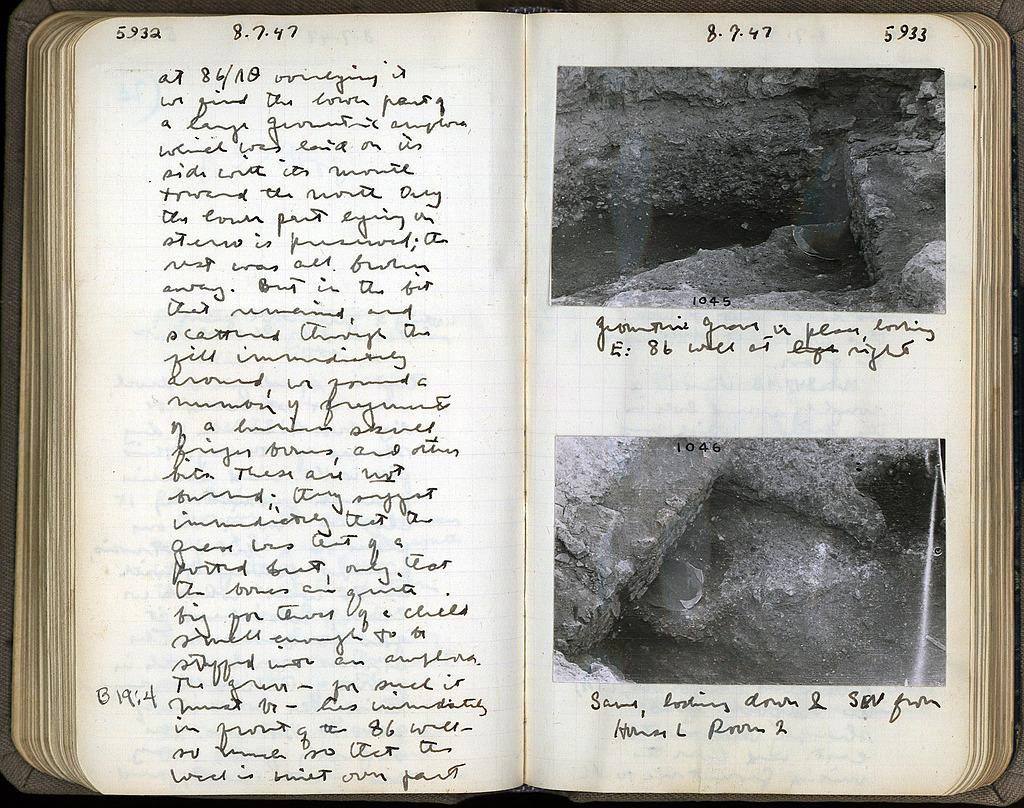 5932 8.7.47
at 86/ΛΘ overlying it
we find the lower part of
a large geometric amphora,
which was laid on its
side with its mouth
toward the north. Only
the lower part lying on
stereo is preserved; the
rest was all broken
away. But in the bit
that remained, and
scattered through the
fill immediately
around, we found a
number of fragments
of a human skull
finger bones, and other
bits. These are not
burned; they suggest
immediately that the
grave was that of a
potted brat, only that
the bones are quite
big for those of a child
small enough to be
stuffed into an amphora.
The grave – for such it
B 19:4
must be – lies immediately
in front of the 86 wall –
so much so that the
wall is built over part
8.7.47 5933
1045
Geometric grave in place, looking
E: 86 wall at right
1046
Same, looking down & SEV from
House L Room 2